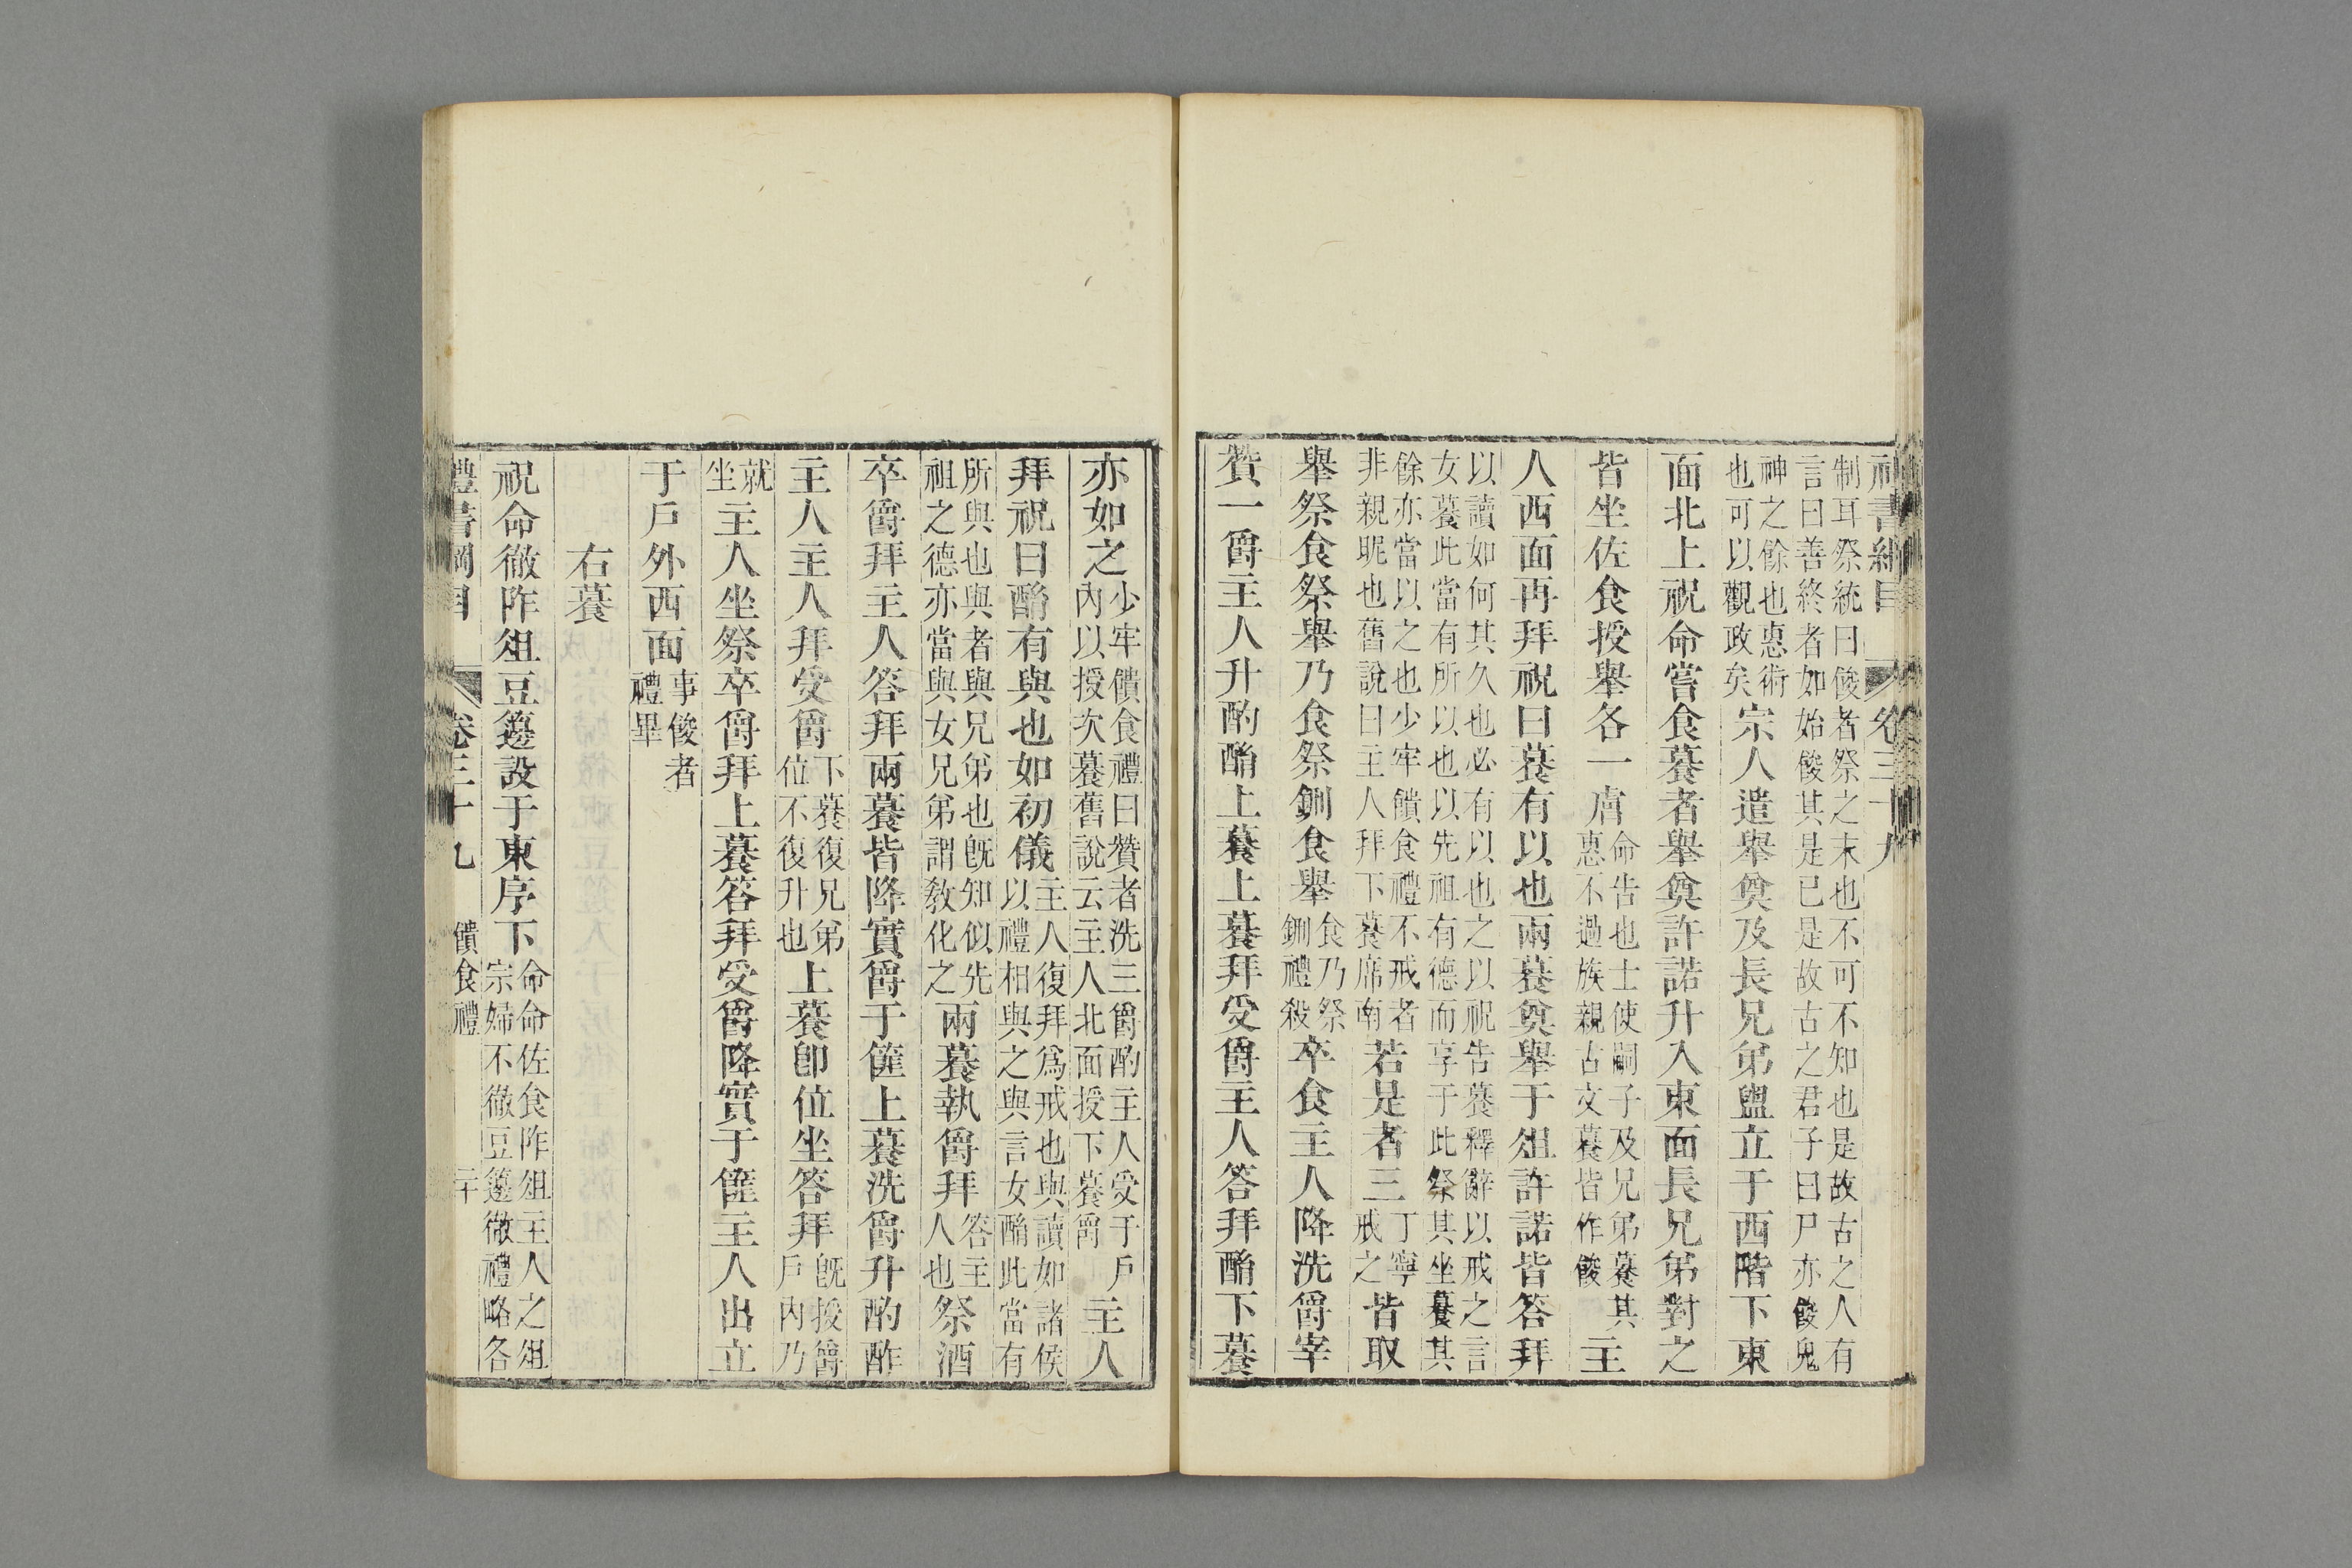 禮書綱目　卷三十九
制耳祭統曰餕者祭之末也不可不知也是故古之人有
言曰善終者如始餕其是已是故古之君子曰尸亦餕鬼
神之餘也惠術也可以觀政矣宗人遣舉奠及長兄弟盥立于西階下東
面北上祝命嘗食䉵者舉奠許諾升入東面長兄弟對之
皆坐佐食授舉各一膚命告也士使嗣子及兄弟䉵其惠不過族親古文䉵皆作餕主
人西面再拜祝曰䉵有以也兩䉵奠舉于俎許諾皆答拜
以讀如何其久也必有以以也之以祝告䉵釋辭以戒之言
女䉵此當有所以也以先祖有德而享于此祭其坐䉵其
餘亦當以之也少牢饋食禮不戒者非親昵也舊說曰主人拜下䉵席南若是者三丁寧戒之皆取
舉祭食祭舉乃食祭鉶食舉食乃祭鉶禮殺卒食主人降洗爵宰
贊一爵主人升酌酳上䉵上䉵拜受爵主人答拜酳下䉵
亦如之少牢饋食禮曰贊者洗三爵酌主人受于戶內以授次䉵舊說云主人北面授下䉵爵主人
拜祝曰酳有與也如初儀主人復拜爲戒也與讀如諸侯以禮相與之與言女酳此當有
所與也與者與兄弟也既知似先祖之德亦當與女兄弟謂敎化之兩䉵執爵拜答主人也祭酒
卒爵拜主人答拜兩䉵皆降實爵于篚上䉵洗爵升酌酢
主人主人拜受爵下䉵復兄弟位不復升也上䉵卽位坐答拜既授爵戶內乃
就坐主人坐祭卒爵拜上䉵答拜受爵降實于篚主人出立
于戶外西面事餕者禮畢
右䉵
祝命徹阼俎豆籩設于東序下命命佐食阼俎主人之俎宗婦不徹豆籩徹禮略各
禮書綱目　卷三十九　饋食禮　二十